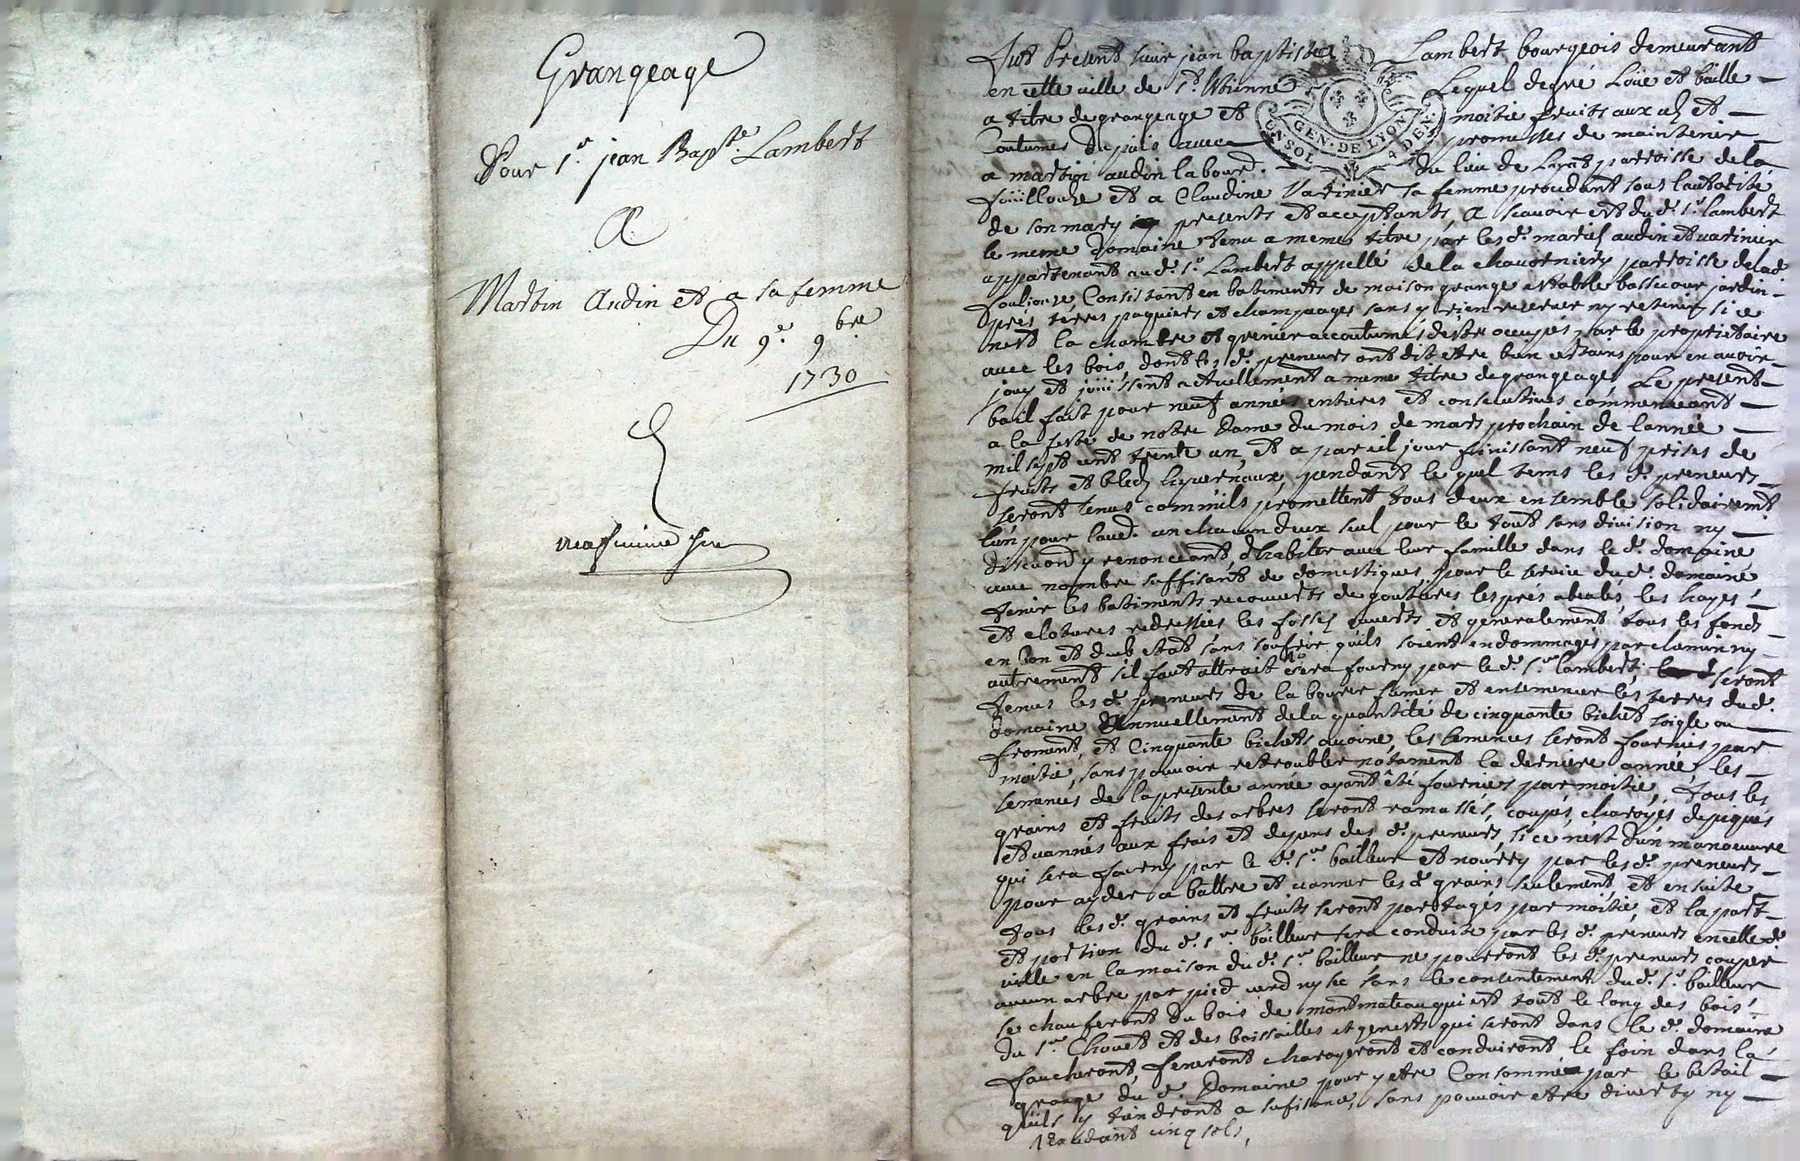 Grangeage
Pour s.r jean Bap.te Lambert
A
Martin Audin et a sa femme
Du 9.e 9bre
1730
Fut Present sieur jean baptiste Lambert bourgeois demeurant
en cette ville de s.t Etienne Lequel de gré Loüe et baille
a titre de grangeage et moitie fruits aux us et
Coutumes du païs avec promesses de maintenir
a martin audin labour. du lieu de parroisse de la
foüillouse et a Claudine Varinier sa femme procedant sous lautorité
de son mary presents et acceptants, A scavoir est du d. s.r lambert
le meme Domaine tenu a meme titre par les d. mariés audin et varinier
appartenant au d. s.r Lambert appellé de la parroisse de lad.
foulouze, Consistant en batiments de maison grange estable basse cour jardin
prés terres paquiers et champeages sans y rien reserver ny retenir si ce
nest la chambre et grenier accoutumés destre occupés par le proprietaire
avec les bois, dont les d. preneurs ont dit etre bien certains pour en avoir
jouy et joüissent actuellement a meme titre de grangeage, Le present
bail fait pour neuf années entieres et consecutives commenceant
a la feste de notre Dame du mois de mars prochain de lannée
mil sept cent trente un, et a pareil jour finissant neuf prises de
fruits et bleds pendant le quel tems les d. preneurs
seront tenus comm'ils promettent tous deux ensemble solidairem.t
lun pour laut. un chacun deux seul pour le tout sans division ny
discution y renonceant, d'habiter avec leur famille dans le d. domaine
avec nombre suffisant de domestiques pour le service du d. domaine
tenir les batiments recouverts de goutieres les prés les hayes
et clotures redressées les fossés ouverts et generalement tous les fonds
en bon et dueb etat sans soufrir qu'ils soient endommagés par chemin ny
autrement s'il faut attrait sera fourny par le d. s.r lambert, seront
tenus les d. preneurs de labourer fumer et ensemencer les terres du d.
Domaine Annuellement de la quantité de cinquante bichets soigle ou
froment, et Cinquante bichets avoine, les semences seront fournies par
moitié, sans pouvoir retroubler notament la derniere année, les
semences de la presente année ayant été fournies par moitié, tous les
grains et fruits des arbres seront ramassés, coupés, charoyés depiqués
et vannés aux frais et depens des d. preneurs, si ce n'est d'un manoeuvre
qui sera fourny par le d. s.r bailleur et nourry par les d. preneurs
pour ayder a battre et vanner les d. grains seulement, et ensuite
tous les d. grains et fruits seront partagés par moitié, et la part
et portion du d. s.r bailleur sera conduite par les d. preneurs en cette d.
ville en la maison du d. s.r bailleur, ne pourront les d. preneurs couper
aucun arbre par pied verd ny sec sans le consentement du d. s.r bailleur
se chauferont du bois de montmateau qui est tout le long des bois
du s.r Chovet et des boissailles et genests qui seront dans le d. domaine
faucheront, feneront charoyeront et conduiront le foin dans la
grange du d. Domaine pour y etre Consommé par le betail
qu'ils y tiendront a sufisance, sans pouvoir etre diverty ny
GEN. DE LYON